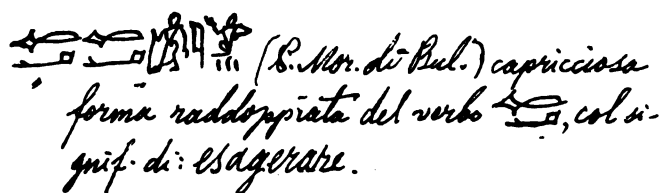 (P. Mor. di Bul.) capricciosa
forma raddoppiata del verbo , col si-
gnif. di: esagerare.